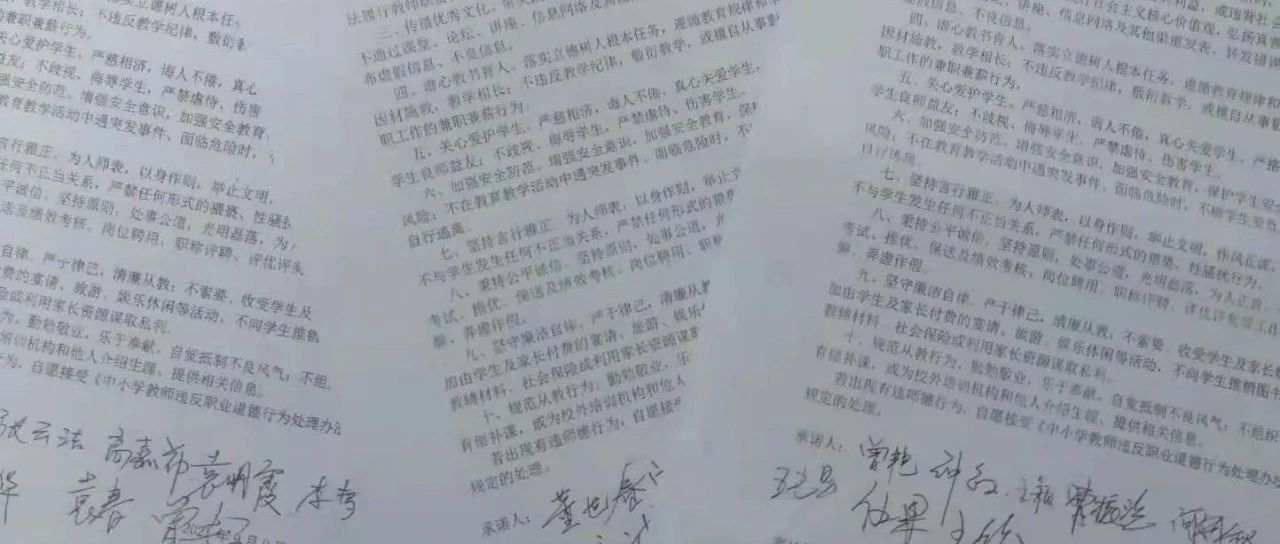 实立德树人根本任
教学相长；不违反教学纪律，敷衍
兼职兼薪行为。
关心爱护学生。严慈相济，诲人不倦，真心
益友；不歧视、侮辱学生，严禁虐待、伤害
强安全防范。增强安全意识，加强安全教育，
教育教学活动中遇突发事件、面临危险时，
言行雅正。为人师表，以身作则，举止文明，
任何不正当关系，严禁任何形式的猥亵、性骚扰
平诚信。坚持原则，处事公道，光明磊落，为
送及绩效考核、岗位聘用、职称评聘、评优评
自律。严于律己，清廉从教；不索要、收受学生及
费的宴请、旅游、娱乐休闲等活动，不向学生推销
险或利用家长资源谋取私利。
为。勤勉敬业，乐于奉献，自觉抵制不良风气；不组
培训机构和他人介绍生源、提供相关信息。
为，自愿接受《中小学教师违反职业道德行为处理办法
张云洁 高嘉 袁明霞 李
袁春
法履行教师职
三、传播优秀文化。
不通过课堂、论坛、讲座、信息网络及
布虚假信息、不良信息。
四、潜心教书育人。落实立德树人根本任务，遵循教育规律和
因材施教，教学相长；不违反教学纪律，敷衍教学，或擅自从事影
职工作的兼职兼薪行为。
五、关心爱护学生。严慈相济，诲人不倦，真心关爱学生，
学生良师益友；不歧视、侮辱学生，严禁虐待、伤害学生。
六、加强安全防范。增强安全意识，加强安全教育，保
风险；不在教育教学活动中遇突发事件、面临危险时，不
自行逃离。
七、坚持言行雅正。为人师表，以身作则，举止
不与学生发生任何不正当关系，严禁任何形式的猥
八、秉持公平诚信。坚持原则，处事公道，光
考试、推优、保送及绩效考核、岗位聘用、职称
弄虚作假。
九、坚守廉洁自律。严于律己，清廉从教
加由学生及家长付费的宴请、旅游、娱乐
教辅材料、社会保险或利用家长资源谋取
十、规范从教行为。勤勉敬业，乐
有偿补课，或为校外培训机构和他人
若出现有违师德行为，自愿接
规定的处理。
承诺人：
社会主义核心价值观，弘扬真善
讲座、信息网络及其他渠道发表、转发错误
假信息、不良信息。
四、潜心教书育人。落实立德树人根本任务，遵循教育规律和
因材施教，教学相长；不违反教学纪律，敷衍教学，或擅自从事影
职工作的兼职兼薪行为。
五、关心爱护学生。严慈相济，诲人不倦，真心关爱学生，严格
学生良师益友；不歧视、侮辱学生，严禁虐待、伤害学生。
六、加强安全防范。增强安全意识，加强安全教育，保护学生安
风险；不在教育教学活动中遇突发事件、面临危险时，不顾学生安危
自行逃离。
七、坚持言行雅正。为人师表，以身作则，举止文明，作风正派，
不与学生发生任何不正当关系，严禁任何形式的猥亵、性骚扰行为。
八、秉持公平诚信。坚持原则，处事公道，光明磊落，为人正直
考试、推优、保送及绩效考核、岗位聘用、职称评聘、评优评奖等工作
弄虚作假。
九、坚守廉洁自律。严于律己，清廉从教；不索要、收受学生及家长
加由学生及家长付费的宴请、旅游、娱乐休闲等活动，不向学生推销图书
教辅材料、社会保险或利用家长资源谋取私利。
十、规范从教行为。勤勉敬业，乐于奉献，自觉抵制不良风气；不组织
有偿补课，或为校外培训机构和他人介绍生源、提供相关信息。
若出现有违师德行为，自愿接受《中小学教师违反职业道德行为处理办法
规定的处理。
承诺人： 曾艳